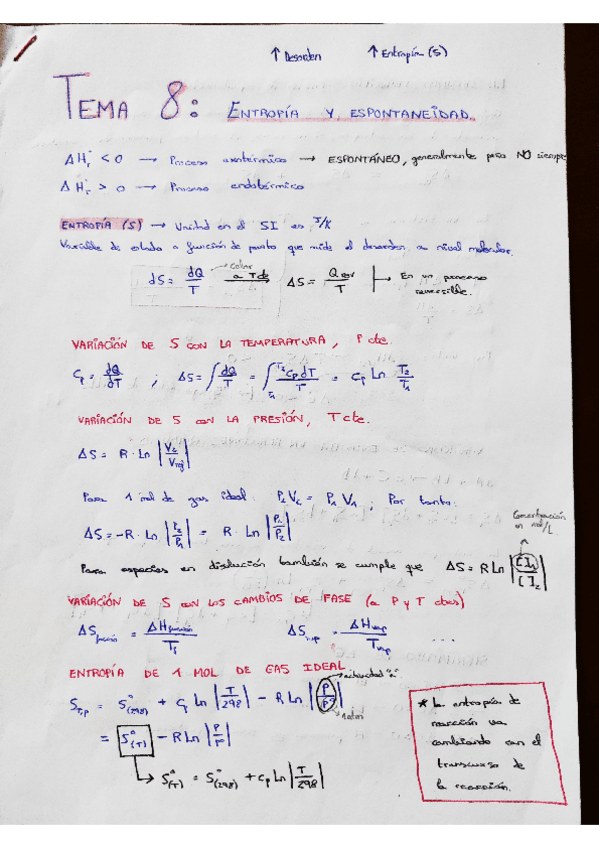 ↑ Desorden ↑ Entropía (S)
TEMA 8: ENTROPÍA Y ESPONTANEIDAD.
ΔHr° < 0 → Proceso exotérmico → ESPONTÁNEO, generalmente pero NO siempre
ΔHr° > 0 → Proceso endotérmico
ENTROPÍA (S) → Unidad en el SI es J/K
Variable de estado o función de punto que mide el desorden a nivel molecular.
dS = dQ/T → calor a T cte → ΔS = Q rev/T → En un proceso reversible.
VARIACIÓN DE S CON LA TEMPERATURA, P cte.
Cp = dQ/dT ; ΔS = ∫ dQ/T = ∫T1 T2 Cp dT/T = Cp Ln T2/T1
VARIACIÓN DE S CON LA PRESIÓN, T cte.
ΔS = R · Ln |V2/V1|
Para 1 mol de gas ideal: P2 V2 = P1 V1 ; Por tanto:
ΔS = -R · Ln |P2/P1| = R · Ln |P1/P2|
Concentración en mol/L
Para especies en disolución también se cumple que ΔS = R Ln |[ ]1/[ ]2|
VARIACIÓN DE S CON LOS CAMBIOS DE FASE (a P y T ctes)
ΔS fusión = ΔH fusión/Tf ΔS vap = ΔH vap/T vap ...
ENTROPÍA DE 1 MOL DE GAS IDEAL
S T,P = S°(298) + Cp Ln |T/298| - R Ln |P/P°| → actividad "a" → 1 atm
= S°(T) - R Ln |P/P°|
→ S°(T) = S°(298) + Cp Ln |T/298|
★ La entropía de
reacción va
cambiando con el
transcurso de
la reacción.